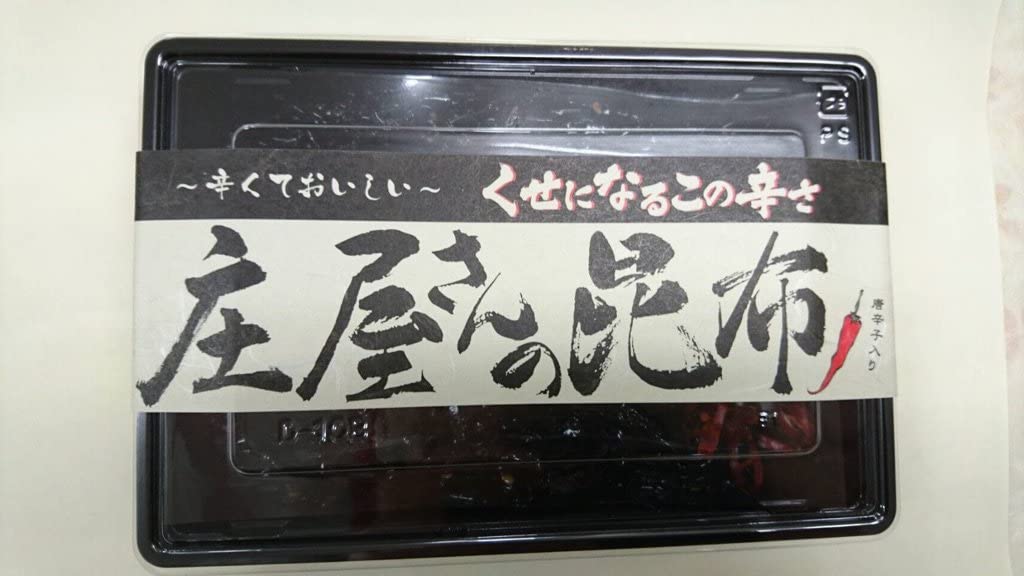 ～辛くておいしい～ くせになるこの辛さ
庄屋さんの昆布
唐辛子入り
PS
D-10B